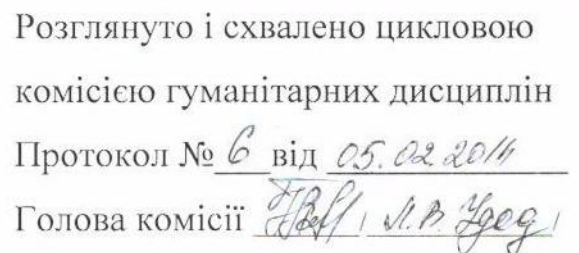 Розглянуто і схвалено цикловою
комісією гуманітарних дисциплін
Протокол № 6 від 05.02.2014
Голова комісії Л.В. Удод